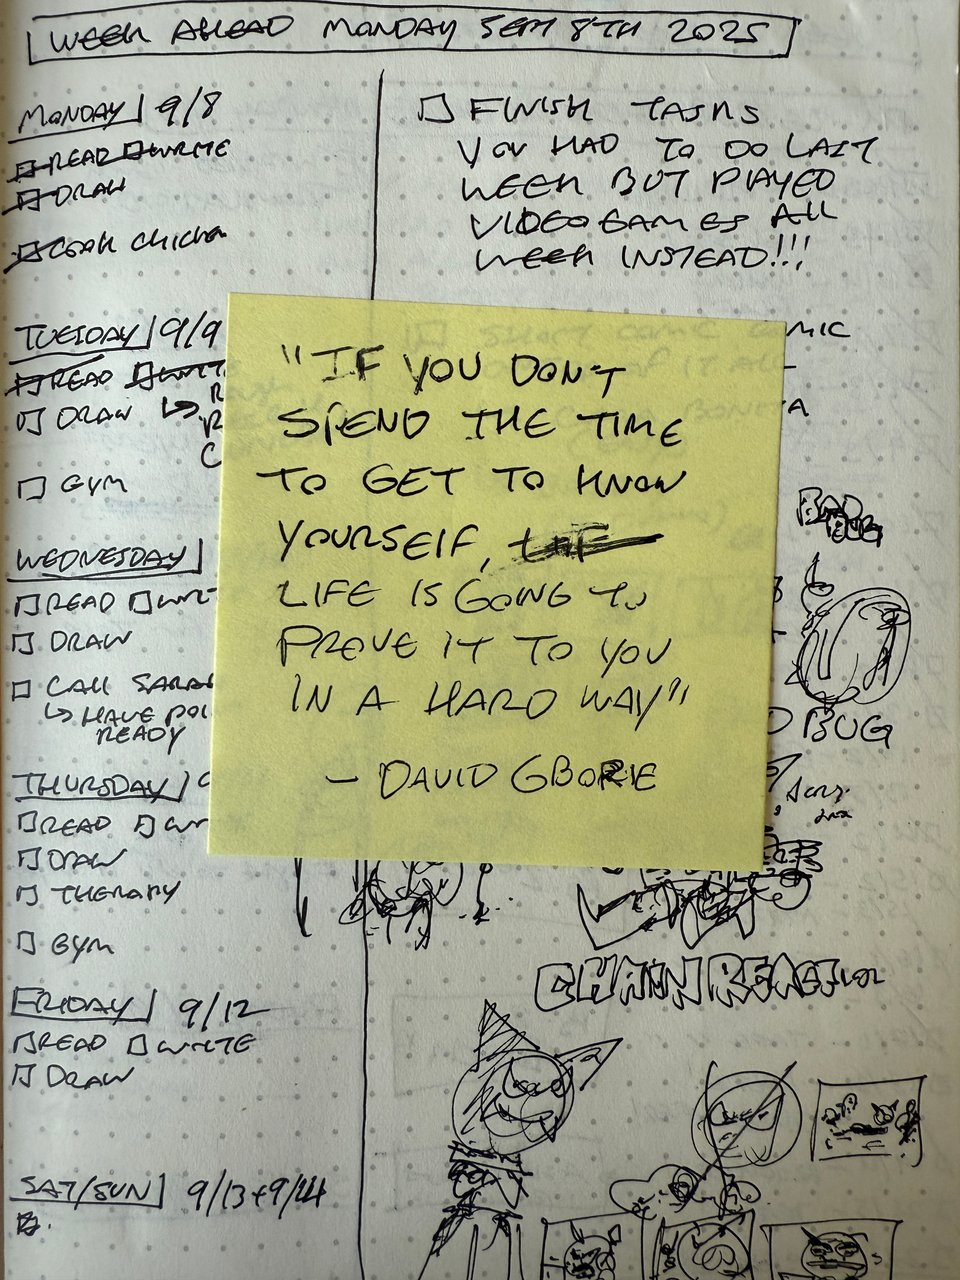 WEEK AHEAD MONDAY SEPT 8TH 2025
MONDAY 9/8
READ WRITE
DRAW
COOK CHICKEN
TUESDAY 9/9
READ
DRAW
GYM
WEDNESDAY
READ
DRAW
CALL SARAH
HAVE
READY
THURSDAY
READ
DRAW
THERAPY
GYM
FRIDAY 9/12
READ WRITE
DRAW
SAT/SUN 9/13 + 9/14
FINISH TASKS
YOU HAD TO DO LAST
WEEK BUT PLAYED
VIDEOGAMES ALL
WEEK INSTEAD!!!
"IF YOU DON'T
SPEND THE TIME
TO GET TO KNOW
YOURSELF,
LIFE IS GOING TO
PROVE IT TO YOU
IN A HARD WAY"
- DAVID GBORIE
BAD
BUG
BUG
CHAIN REACTION